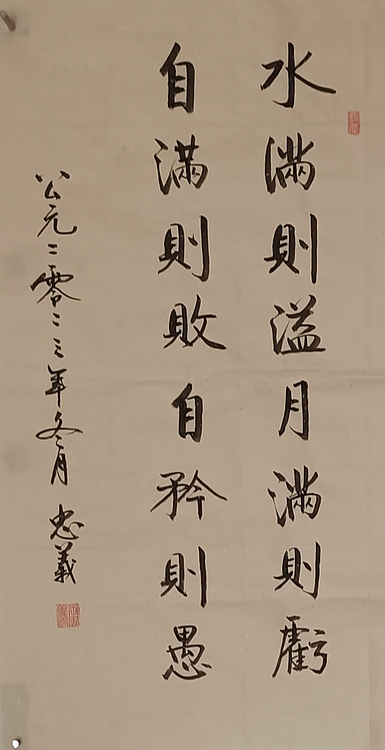 水滿則溢月滿則虧
自滿則敗自矜則愚
公元二零二三年冬月 忠義